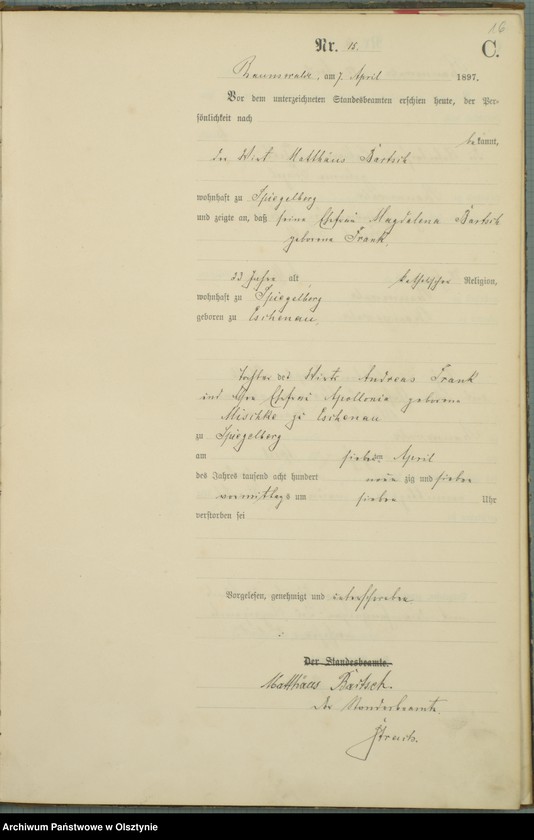 16
Nr. 15. C.
am 7. April 1897.
Vor dem unterzeichneten Standesbeamten erschien heute, der Per-
sönlichkeit nach
bekannt,
der Wirt Matthäus Bartsch
wohnhaft zu Spiegelberg
und zeigte an, daß seine Ehefrau Magdalena Bartsch
geborene Frank,
33 Jahre alt, katholischer Religion,
wohnhaft zu Spiegelberg
geboren zu Eschenau,
Tochter des Wirts Andreas Frank
und Ehefrau Apollonia geborene
Mischke zu Eschenau
zu Spiegelberg
am siebten April
des Jahres tausend acht hundert neun zig und sieben
vormittags um sieben Uhr
verstorben sei
Vorgelesen, genehmigt und unterschrieben
Der Standesbeamte.
Matthäus Bartsch.
Der Standesbeamte.
Archiwum Państwowe w Olsztynie